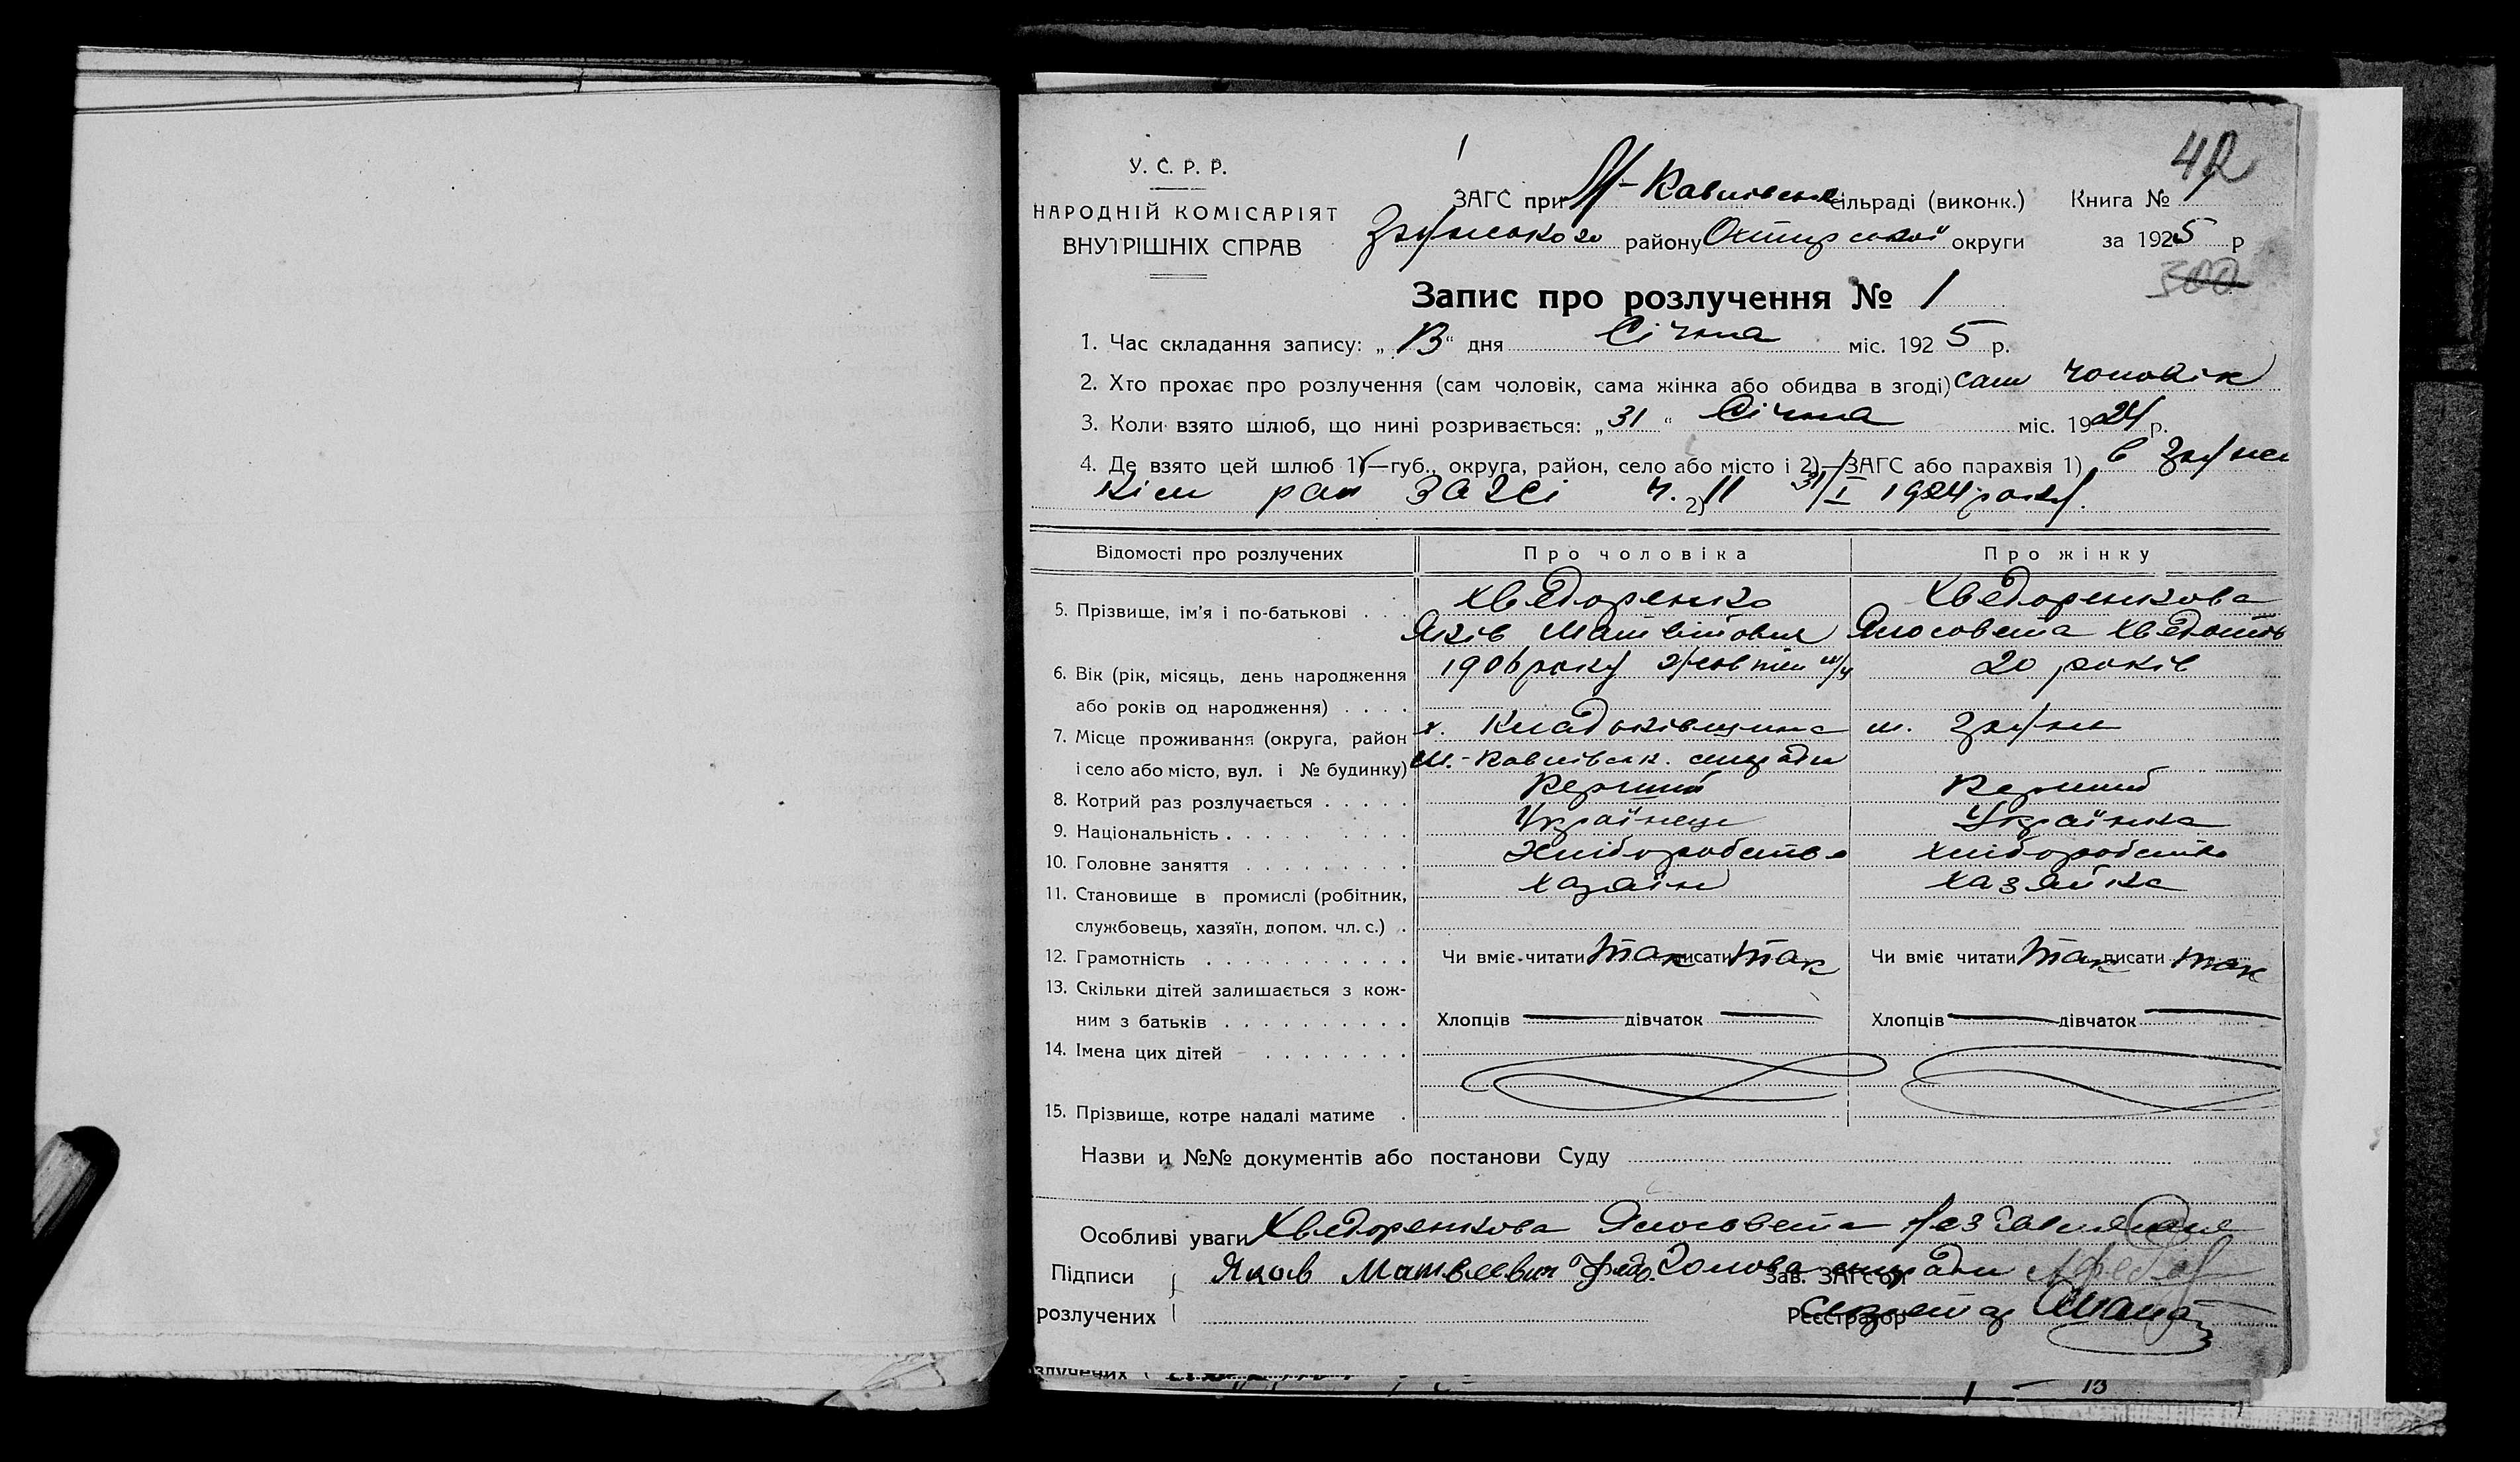 42
1
У. С. Р. Р.
НАРОДНІЙ КОМІСАРІЯТ
ВНУТРІШНІХ СПРАВ
ЗАГС при М-Павлівськ сільраді (виконк.) Книга № 1
Зіньського району Охтирської округи за 1925 р
300
Запис про розлучення № 1
1. Час складання запису: „13“ дня Січня міс. 1925 р.
2. Хто прохає про розлучення (сам чоловік, сама жінка або обидва в згоді) сам чоловік
3. Коли взято шлюб, що нині розривається: „31“ Січня міс. 1924 р.
4. Де взято цей шлюб 1)—губ., округа, район, село або місто і 2)—ЗАГС або парахвія 1) в
кім рай ЗАГСі ч. 2) 11 31/I 1924 року.
Відомості про розлучених Про чоловіка Про жінку
5. Прізвище, ім’я і по-батькові . . . Хведоренко Хведоренкова
Яків Матвійович Хведотів
6. Вік (рік, місяць, день народження 1906 року 20 років
або років од народження) . . . .
7. Місце проживання (округа, район х. м.
і село або місто, вул. і № будинку) М.-Павлівськ. сільради
8. Котрий раз розлучається . . . . . Перший Перший
9. Національність . . . . . . . . . Українець Українка
10. Головне заняття . . . . . . . . . Хліборобство хліборобство
11. Становище в промислі (робітник, хазяїн хазяйка
службовець, хазяїн, допом. чл. с.) .
12. Грамотність . . . . . . . . . . . Чи вміє читати так писати так Чи вміє читати так писати так
13. Скільки дітей залишається з кож-
ним з батьків . . . . . . . . . . Хлопців — дівчаток — Хлопців — дівчаток —
14. Імена цих дітей . . . . . . . .
15. Прізвище, котре надалі матиме .
Назви и №№ документів або постанови Суду
Особливі уваги Хведоренкова
Підписи Яков Матвеевич Голова сільради Зав. ЗАГС’ом
розлучених Реєстратор секретар
злучених
13